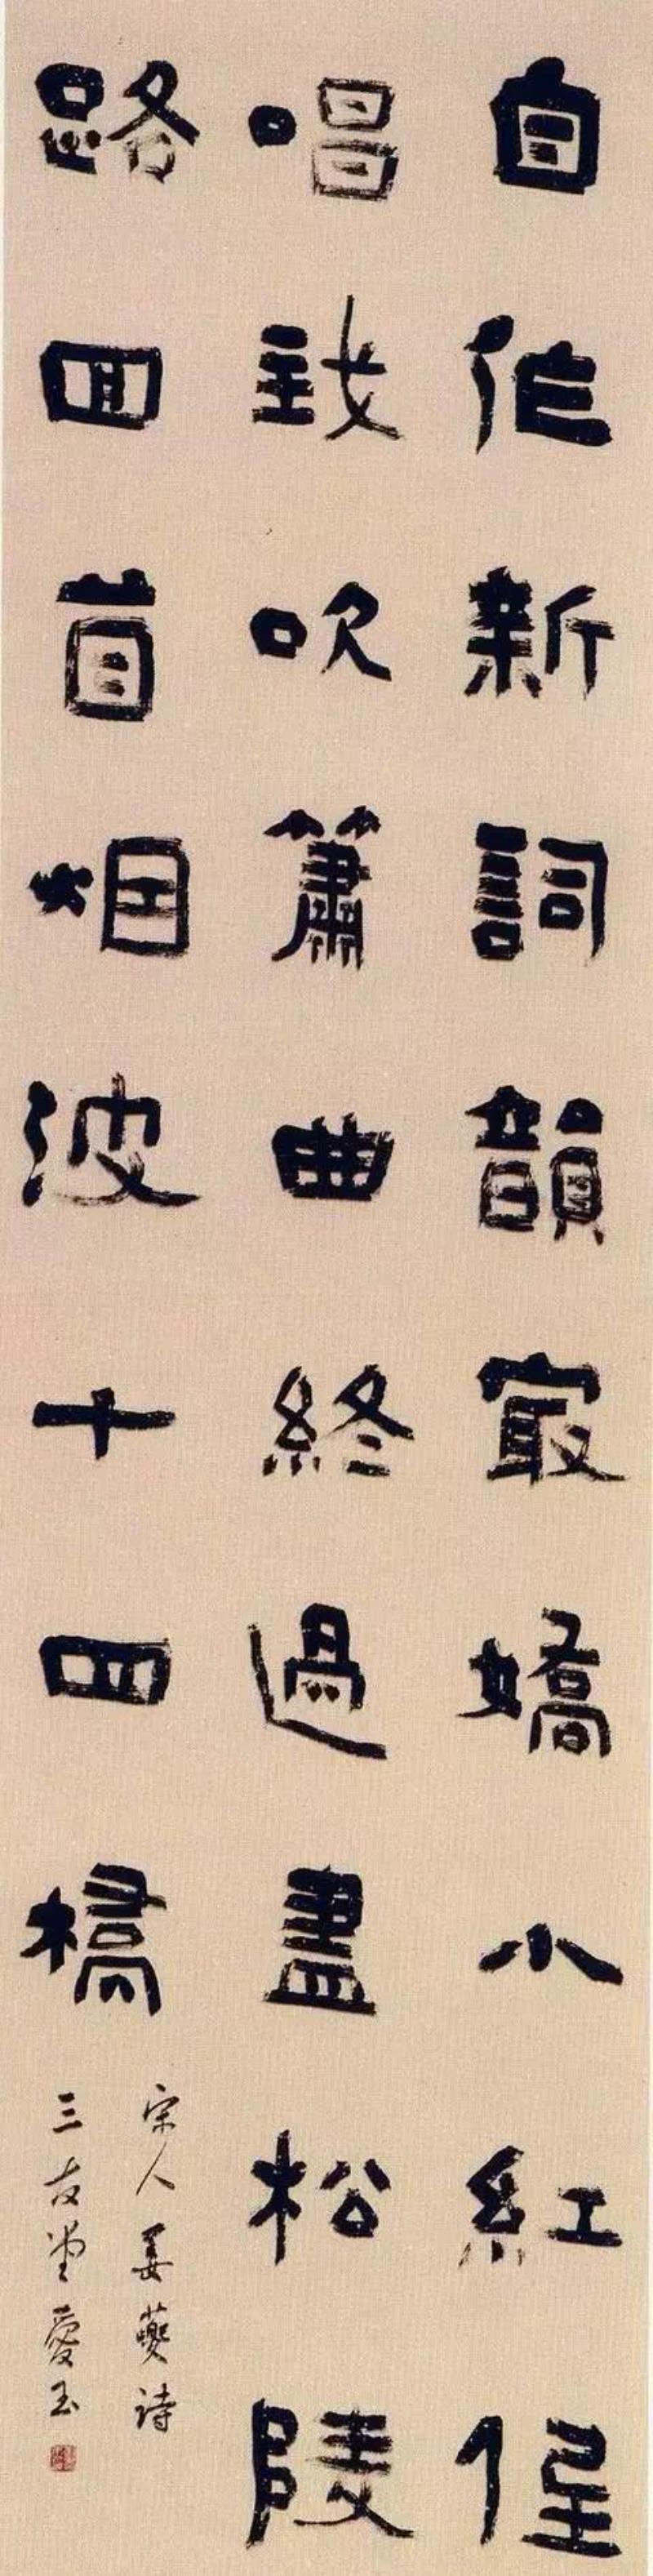 自作新詞韻最嬌小紅低
唱我吹簫曲終過盡松陵
路回首烟波十四橋
宋人姜夔诗
三友堂愛玉